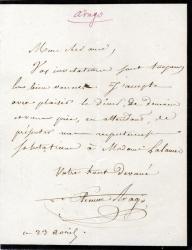 arago
Mon cher ami,
Vos invitations sont toujours
les bien venues. J'accepte
avec plaisir le dîner de demain
et vous prie, en attendant, de
présenter mes respectueuses
salutations à Madame
Votre tout dévoué
Arago
ce 23 avril.